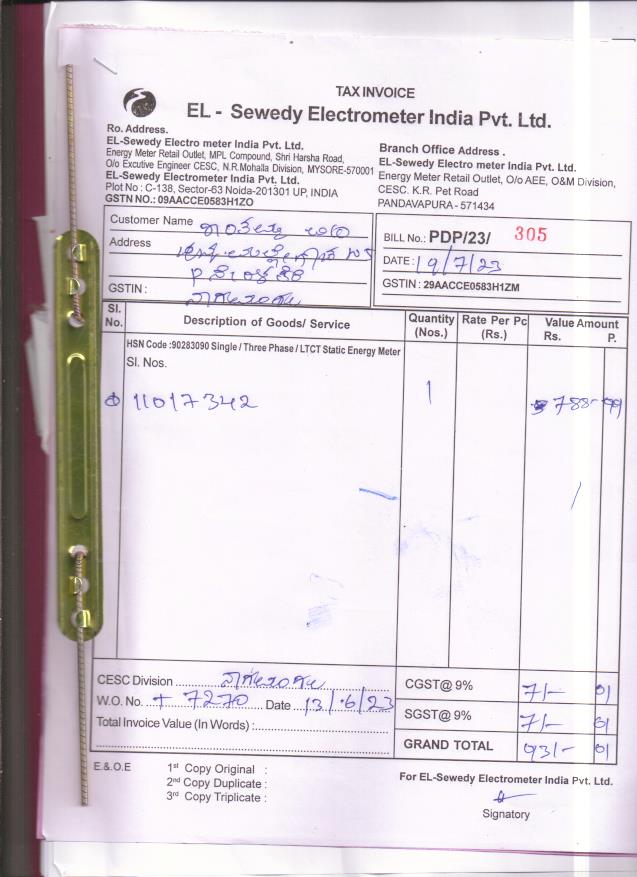 TAX INVOICE
EL - Sewedy Electrometer India Pvt. Ltd.
Ro. Address.
EL-Sewedy Electro meter India Pvt. Ltd.
Energy Meter Retail Outlet, MPL Compound, Shri Harsha Road,
O/o Excutive Engineer CESC, N.R.Mohalla Division, MYSORE-570001
EL-Sewedy Electro meter India Pvt. Ltd.
Plot No : C-138, Sector-63 Noida-201301 UP, INDIA
GSTN NO.: 09AACCE0583H1ZO
Branch Office Address .
EL-Sewedy Electro meter India Pvt. Ltd.
Energy Meter Retail Outlet, O/o AEE, O&M Division,
CESC. K.R. Pet Road
PANDAVAPURA - 571434
Customer Name
Address
GSTIN :
BILL No.: PDP/23/ 305
DATE : 19/7/23
GSTIN : 29AACCE0583H1ZM
Sl. No. Description of Goods/ Service Quantity (Nos.) Rate Per Pc (Rs.) Value Amount Rs. P.
HSN Code :90283090 Single / Three Phase / LTCT Static Energy Meter
Sl. Nos.
11017342 1 788- 99
CESC Division
W.O. No. 7270 Date 13/6/23
Total Invoice Value (In Words) :
CGST@ 9% 71/- 01
SGST@ 9% 71/- 01
GRAND TOTAL 931/- 01
E.&.O.E
1st Copy Original :
2nd Copy Duplicate :
3rd Copy Triplicate :
For EL-Sewedy Electrometer India Pvt. Ltd.
Signatory